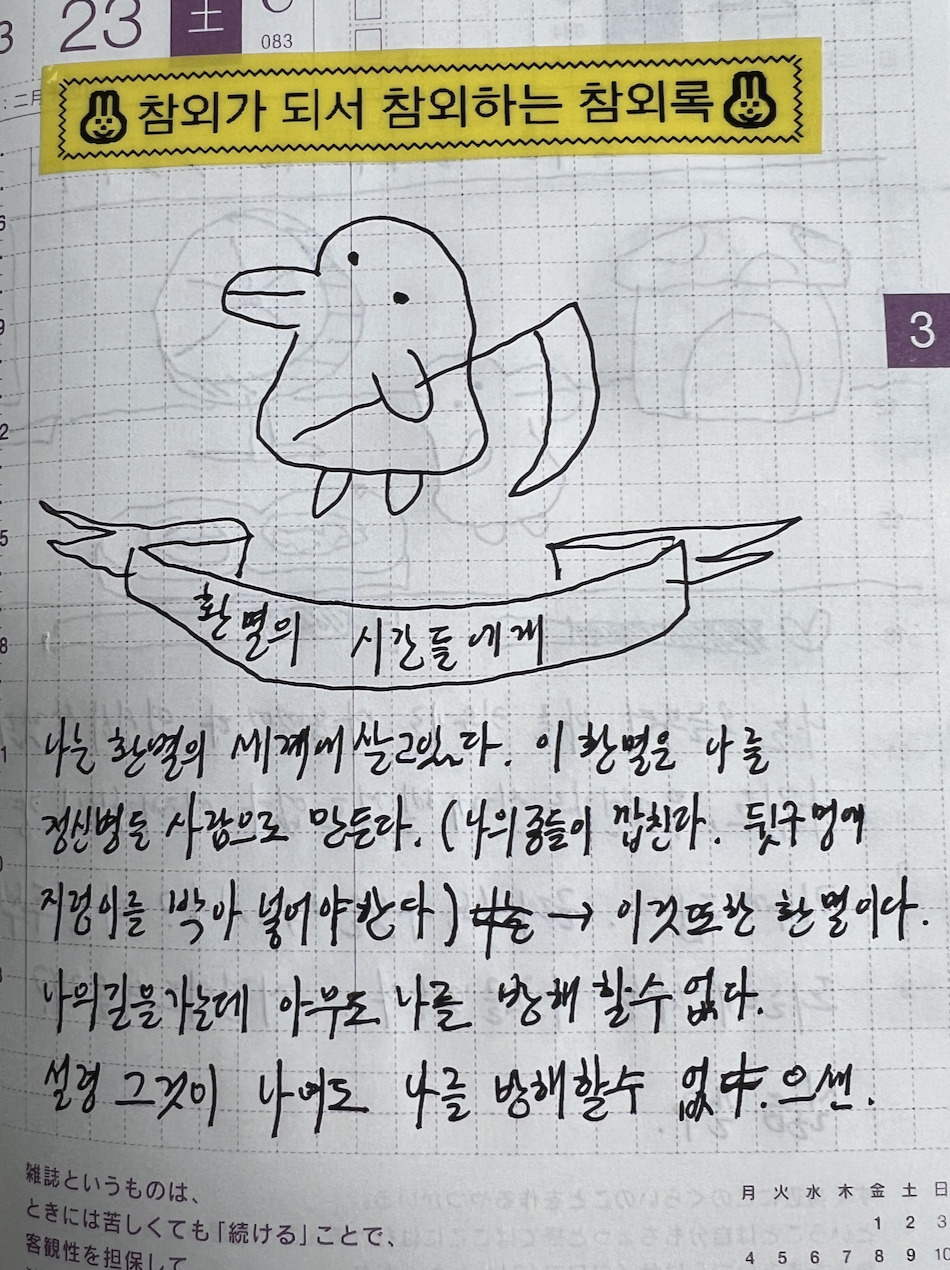 3
23
土
083
: 二月
참외가 되서 참외하는 참외록
6
9
3
2
5
환멸의 시간들에게
8
나는 환멸의 세계에 살고있다. 이 환멸은 나를
1
정신병들 사람으로 만든다. (나의 종들이 깝친다. 뒷구멍에
0
지렁이를 박아 넣어야한다) → 이것또한 환멸이다.
나의길을가는데 아무도 나를 방해 할수 없다.
설령 그것이 나여도 나를 방해할수 없다. 으센.
雑誌というものは、
ときには苦しくても「続ける」ことで、
客観性を担保して
月 火 水 木 金 土 日
1 2 3
4 5 6 7 8 9 10